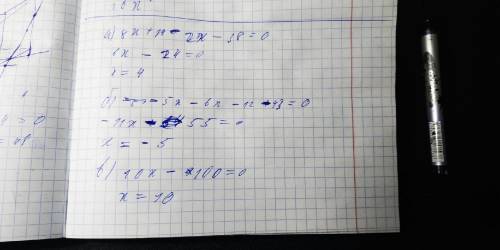 а) 8x + 14 - 2x - 38 = 0
6x - 24 = 0
x = 4
б) - 5x - 6x - 12 - 43 = 0
- 11x - 55 = 0
x = - 5
в) 10x - 100 = 0
x = 10
= 0